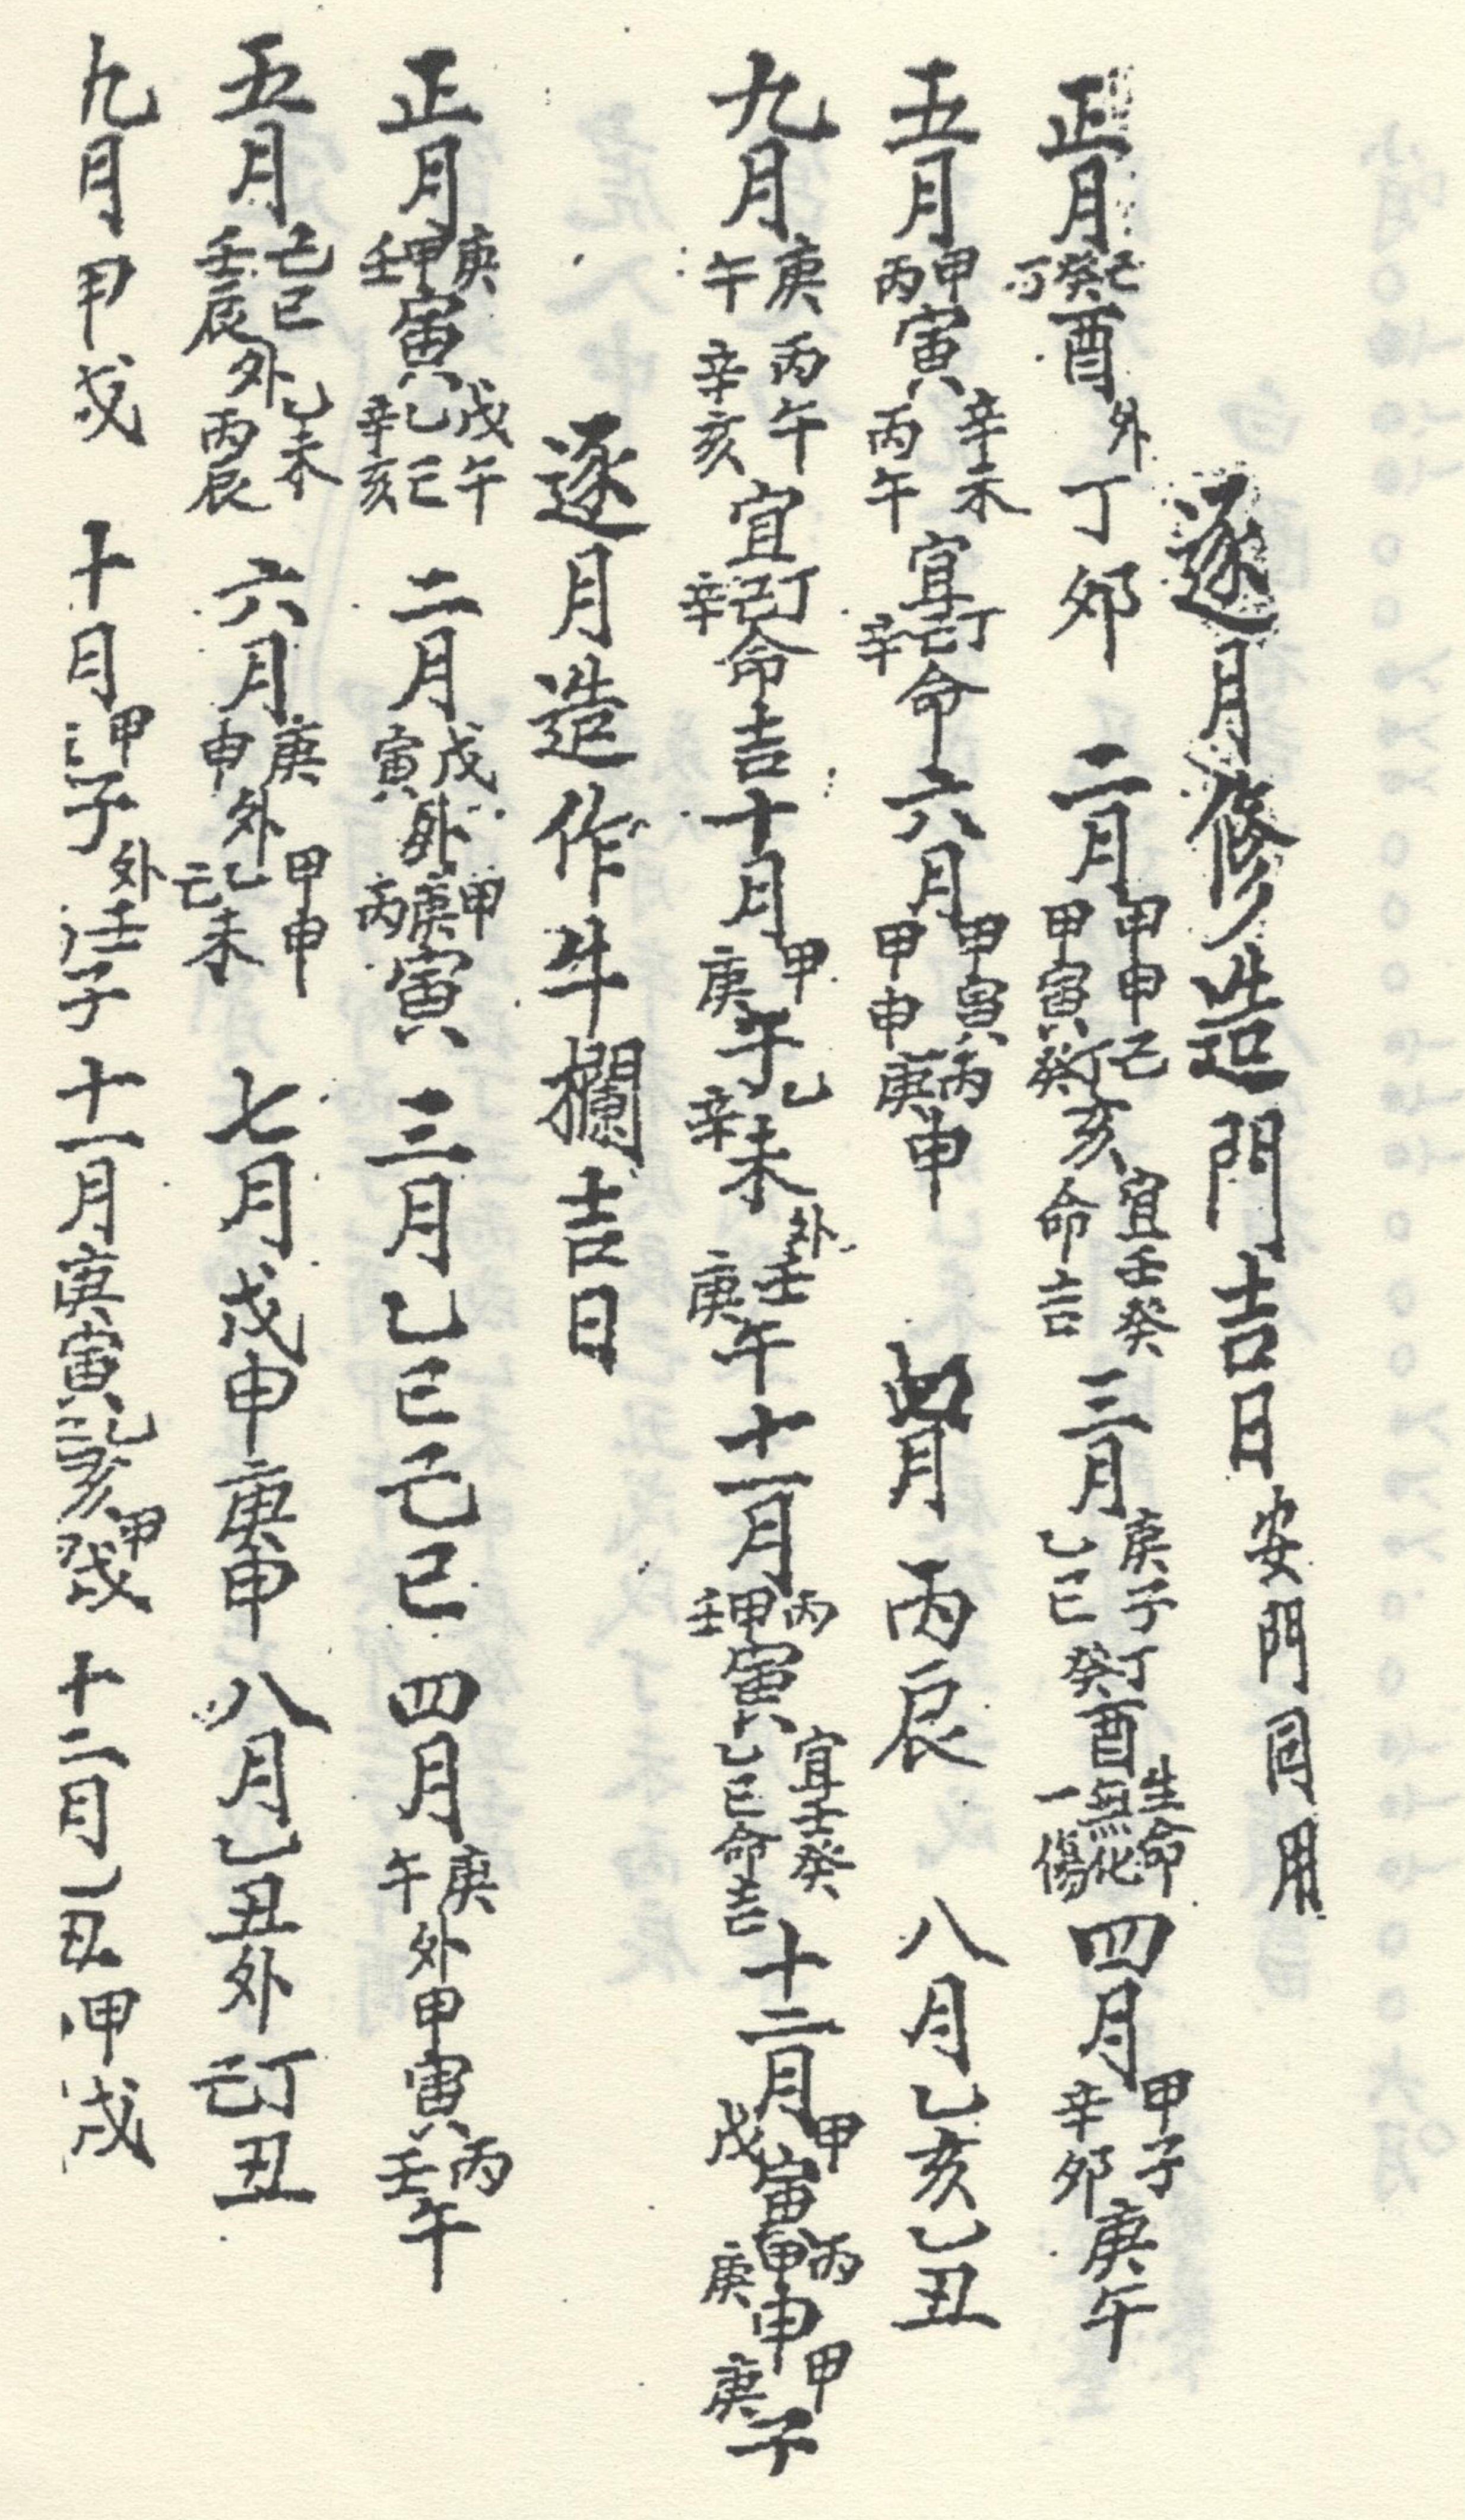 逐月修造門吉日安門同用
正月己癸丁酉外丁卯二月甲申甲寅己丁癸亥宜壬癸命吉三月庚子乙巳丁癸酉生命無化一傷四月甲子辛卯庚午
五月甲丙寅辛未丙午宜丁己辛命六月甲寅甲申丙庚申七月丙辰八月乙亥乙丑
九月庚午丙午辛亥宜丁己辛命吉十月甲庚午乙辛未外壬庚午十一月丙甲壬寅宜壬癸乙巳命吉十二月甲戊寅丙甲庚申甲庚子
逐月造作牛欄吉日
正月庚甲壬寅戊午乙己辛亥二月戊寅外甲庚丙寅三月乙巳己巳四月庚午外甲寅丙壬午
五月己巳壬辰外乙未丙辰六月庚申外甲申乙己未七月戊申庚申八月乙丑外丁己丑
九月甲戌十月甲子外壬子十一月庚寅乙亥甲戌十二月乙丑甲戌